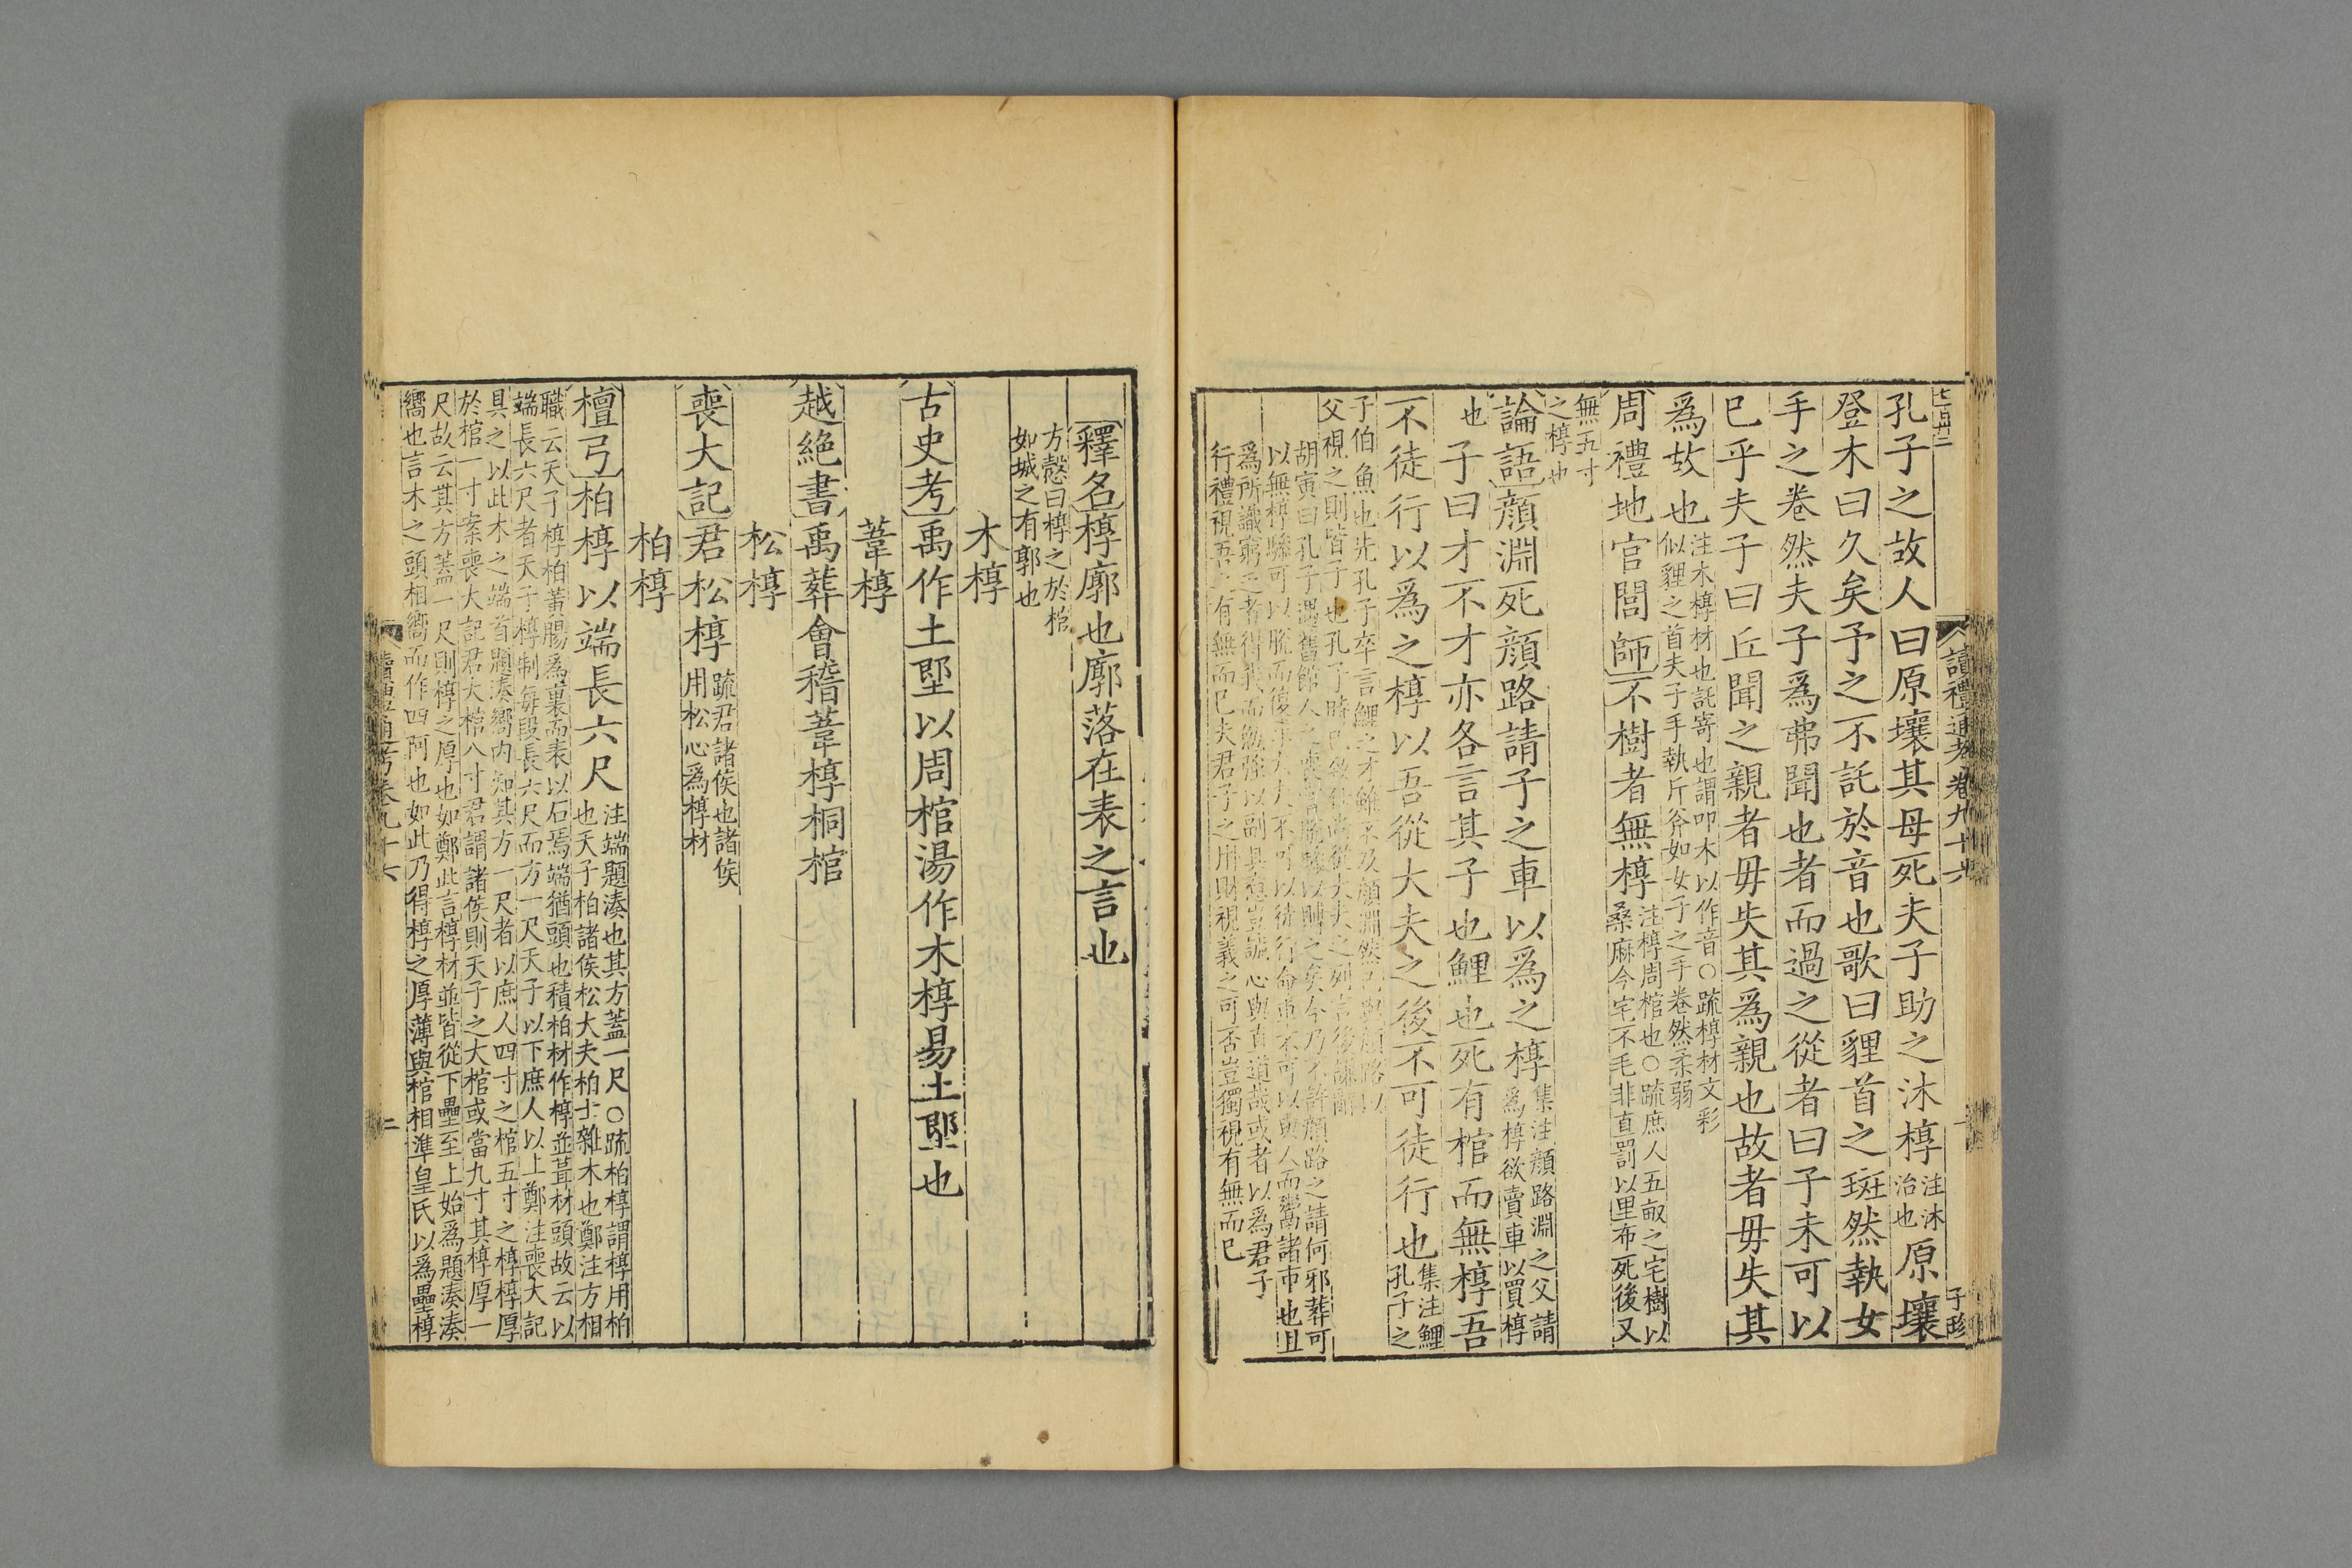 孔子之故人曰原壤其母死夫子助之沐椁注沐治也原壤
登木曰久矣予之不託於音也歌曰貍首之斑然執女
手之卷然夫子爲弗聞也者而過之從者曰子未可以
已乎夫子曰丘聞之親者毋失其爲親也故者毋失其
爲故也注木椁材也託寄也謂叩木以作音○疏椁材文彩
似貍之首夫子手執斤斧如女子之手卷然柔弱
周禮地官閭師不樹者無椁注椁周棺也○疏庶人五畝之宅樹以
桑麻今宅不毛非直罰以里布死後又
無五寸
之椁也
論語顔淵死顔路請子之車以爲之椁集注顔路淵之父請
爲椁欲賣車以買椁
也子曰才不才亦各言其子也鯉也死有棺而無椁吾
不徒行以爲之椁以吾從大夫之後不可徒行也集注鯉
孔子之
子伯魚也先孔子卒言鯉之才雖不及顔淵然己與顔路以
父視之則皆子也孔子時已致仕尚從大夫之列言後謙辭
胡寅曰孔子遇舊館人之喪嘗脫驂以賻之矣今乃不許顔路之請何邪葬可
以無椁驂可以脫而復求大夫不可以徒行命車不可以與人而鬻諸巿也且
爲所識窮乏者得我而勉強以副其意豈誠心與直道哉或者以爲君子
行禮視吾之有無而已夫君子之用財視義之可否豈獨視有無而已
讀禮通考卷九十六
釋名椁廓也廓落在表之言也
方慤曰椁之於棺
如城之有郭也
木椁
古史考禹作土堲以周棺湯作木椁易土堲也
葦椁
越絶書禹葬會稽葦椁桐棺
松椁
喪大記君松椁疏君諸侯也諸侯
用松心爲椁材
柏椁
檀弓柏椁以端長六尺注端題湊也其方蓋一尺○疏柏椁謂椁用柏
也天子柏諸侯松大夫柏士雜木也鄭注方相
職云天子椁柏黃腸爲裏而表以石焉端猶頭也積柏材作椁並葺材頭故云以
端長六尺者天子椁制每段長六尺而方一尺天子以下庶人以上鄭注喪大記
具之以此木之端首題湊嚮內知其方一尺者以庶人四寸之棺五寸之椁椁厚
於棺一寸案喪大記君大棺八寸君謂諸侯則天子之大棺或當九寸其椁厚一
尺故云其方蓋一尺則椁之厚也如鄭此言椁材並皆從下壘至上始爲題湊湊
嚮也言木之頭相嚮而作四阿也如此乃得椁之厚薄與棺相準皇氏以爲壘椁
讀禮通考卷九十六
二